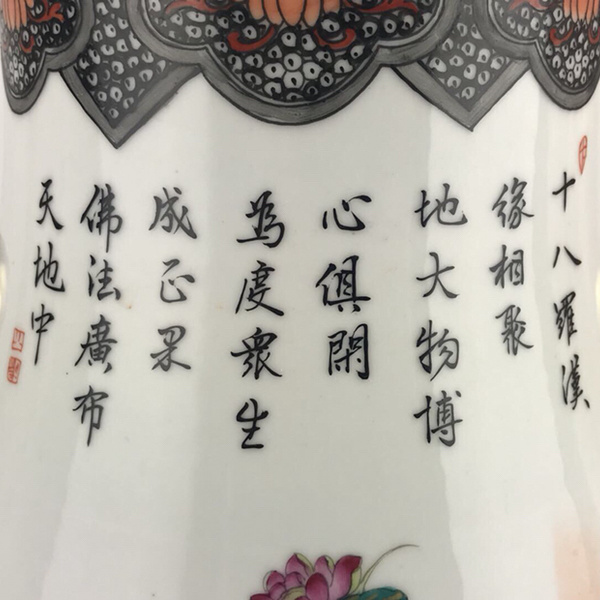 十八羅漢
緣相聚
地大物博
心俱閑
為度眾生
成正果
佛法廣布
天地中